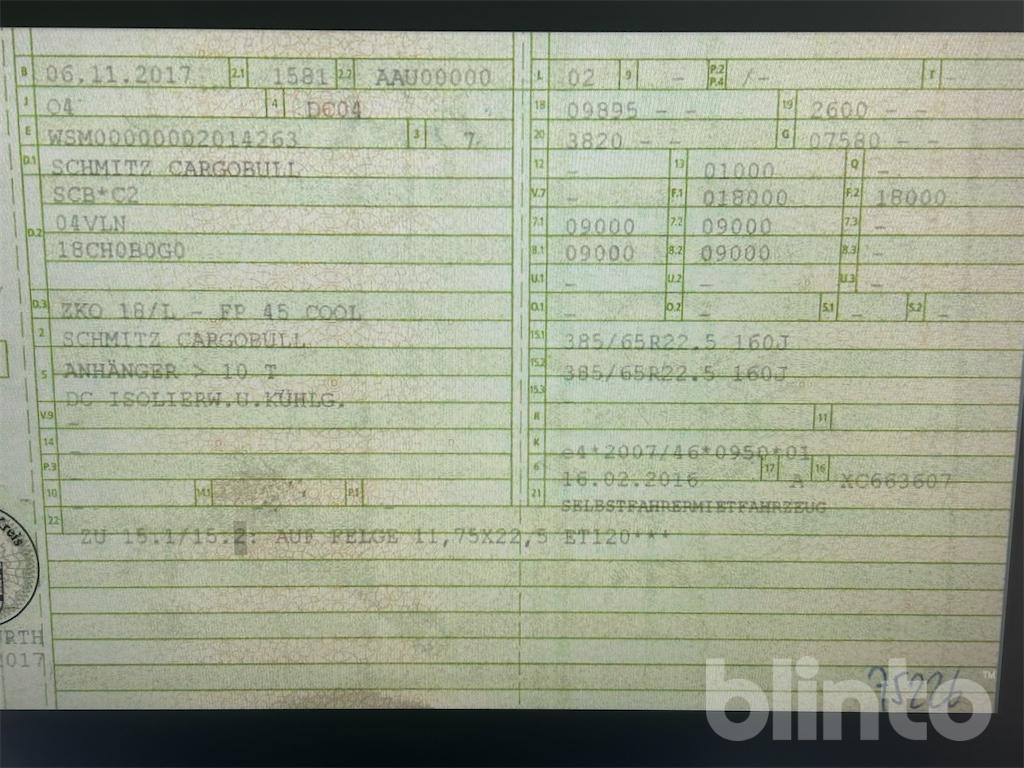 B 06.11.2017 2.1 1581 2.2 AAU00000
J O4 4 DC04
E WSM00000002014263 3 7
D.1 SCHMITZ CARGOBULL
SCB*C2
D.2 04VLN
18CH0B0G0
D.3 ZKO 18/L - FP 45 COOL
2 SCHMITZ CARGOBULL
5 ANHÄNGER > 10 T
DC ISOLIERW.U.KÜHLG.
V.9 -
14
P.3
10 - M.1 P.1 -
L 02 9 - P.2 P.4 /- T -
18 09895 - - 19 2600 - -
20 3820 - - G 07580 - -
12 - 13 01000 Q -
V.7 - F.1 018000 F.2 18000
7.1 09000 7.2 09000 7.3 -
8.1 09000 8.2 09000 8.3 -
U.1 - U.2 - U.3 -
O.1 - O.2 - S.1 - S.2 -
15.1 385/65R22.5 160J
15.2 385/65R22.5 160J
15.3 -
R 11
K e4*2007/46*0950*01
6 16.02.2016 17 A 16 XC663607
21 SELBSTFAHRERMIETFAHRZEUG
22 ZU 15.1/15.2: AUF FELGE 11,75X22,5 ET120***
kreis
RTH
2017
75226
blinto™